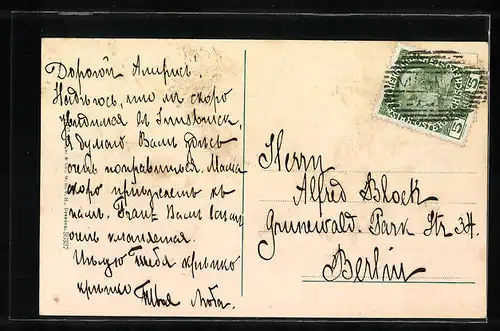 Дорогой Альфредъ!
Надѣюсь, что мы скоро
увидимся въ Innsbruck.
Я думаю Вамъ здѣсь
очень понравится. Мама
скоро пріѣзжаетъ къ
намъ. Franz Вамъ
очень кланяется.
Цѣлую Тебя крѣпко
крѣпко Твоя Люба.
Herrn
Alfred Block
Grunewald. Park Str 34.
Berlin
5
5